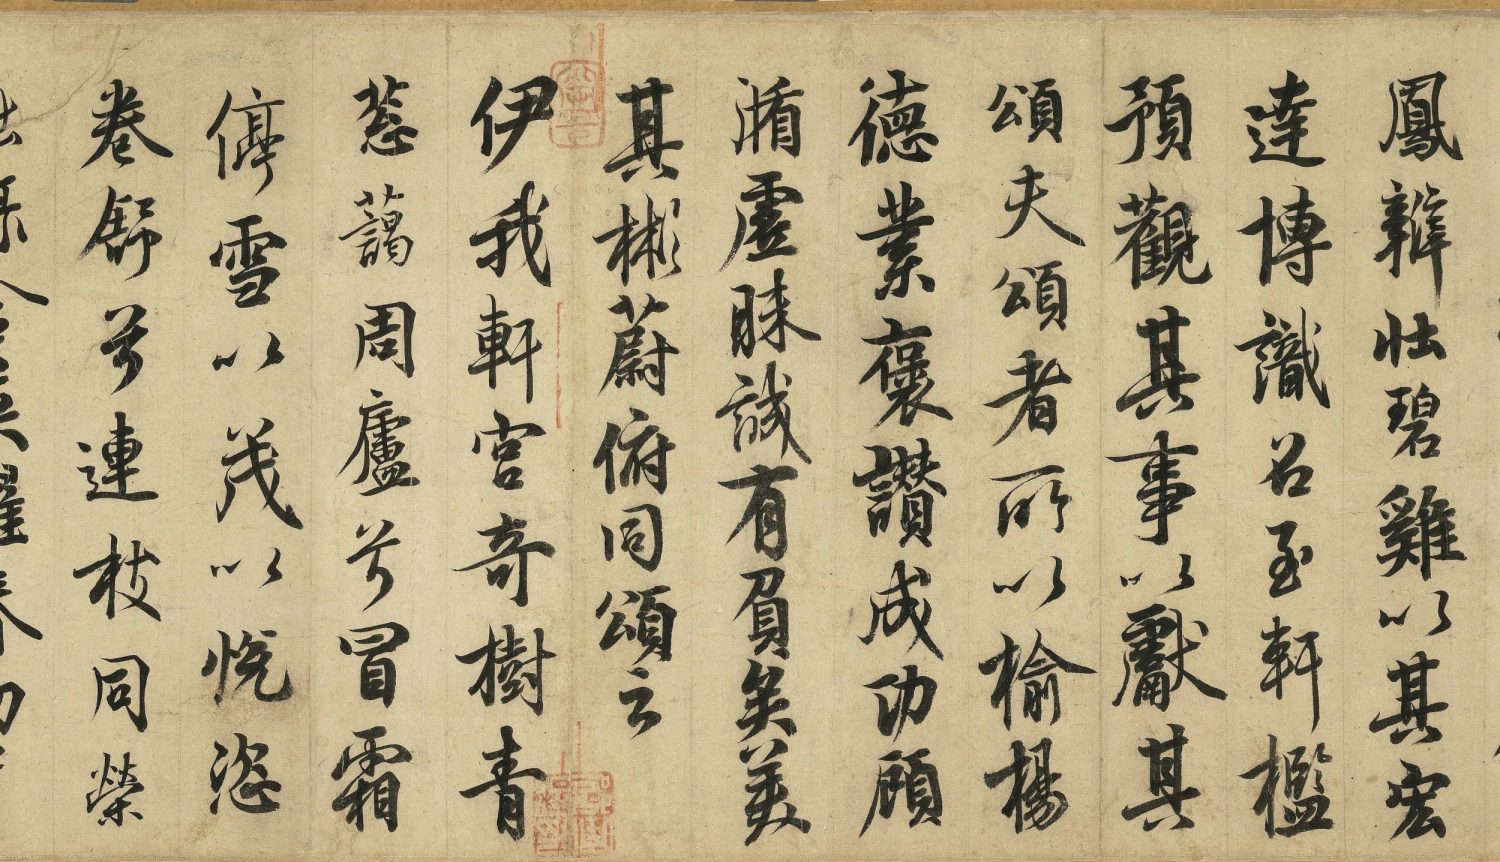 鳳辯壯碧雞以其宏
達博識召至軒檻
預觀其事以獻其
頌夫頌者所以榆楊
德業褒讚成功顧
循虛昧誠有負矣美
其彬蔚俯同頌云
伊我軒宮奇樹青
蔥藹周廬兮冒霜
停雪以茂以悅恣
卷舒兮連枝同榮